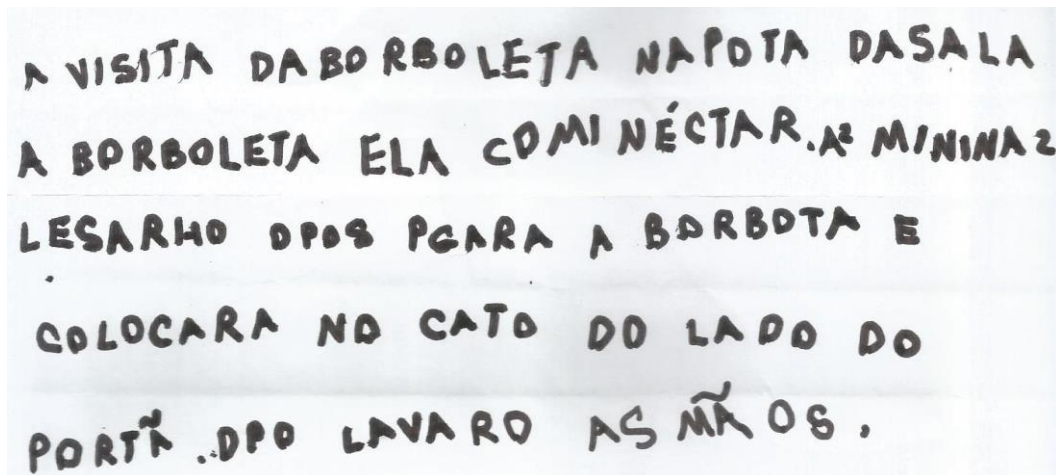 A VISITA DABORBOLETA NAPOTA DASALA
A BORBOLETA ELA COMI NÉCTAR. A² MININA²
LESARHO DPOS PGARA A BORBOTA E
COLOCARA NO CATO DO LADO DO
PORTÃ. DPO LAVARO AS MÃOS.